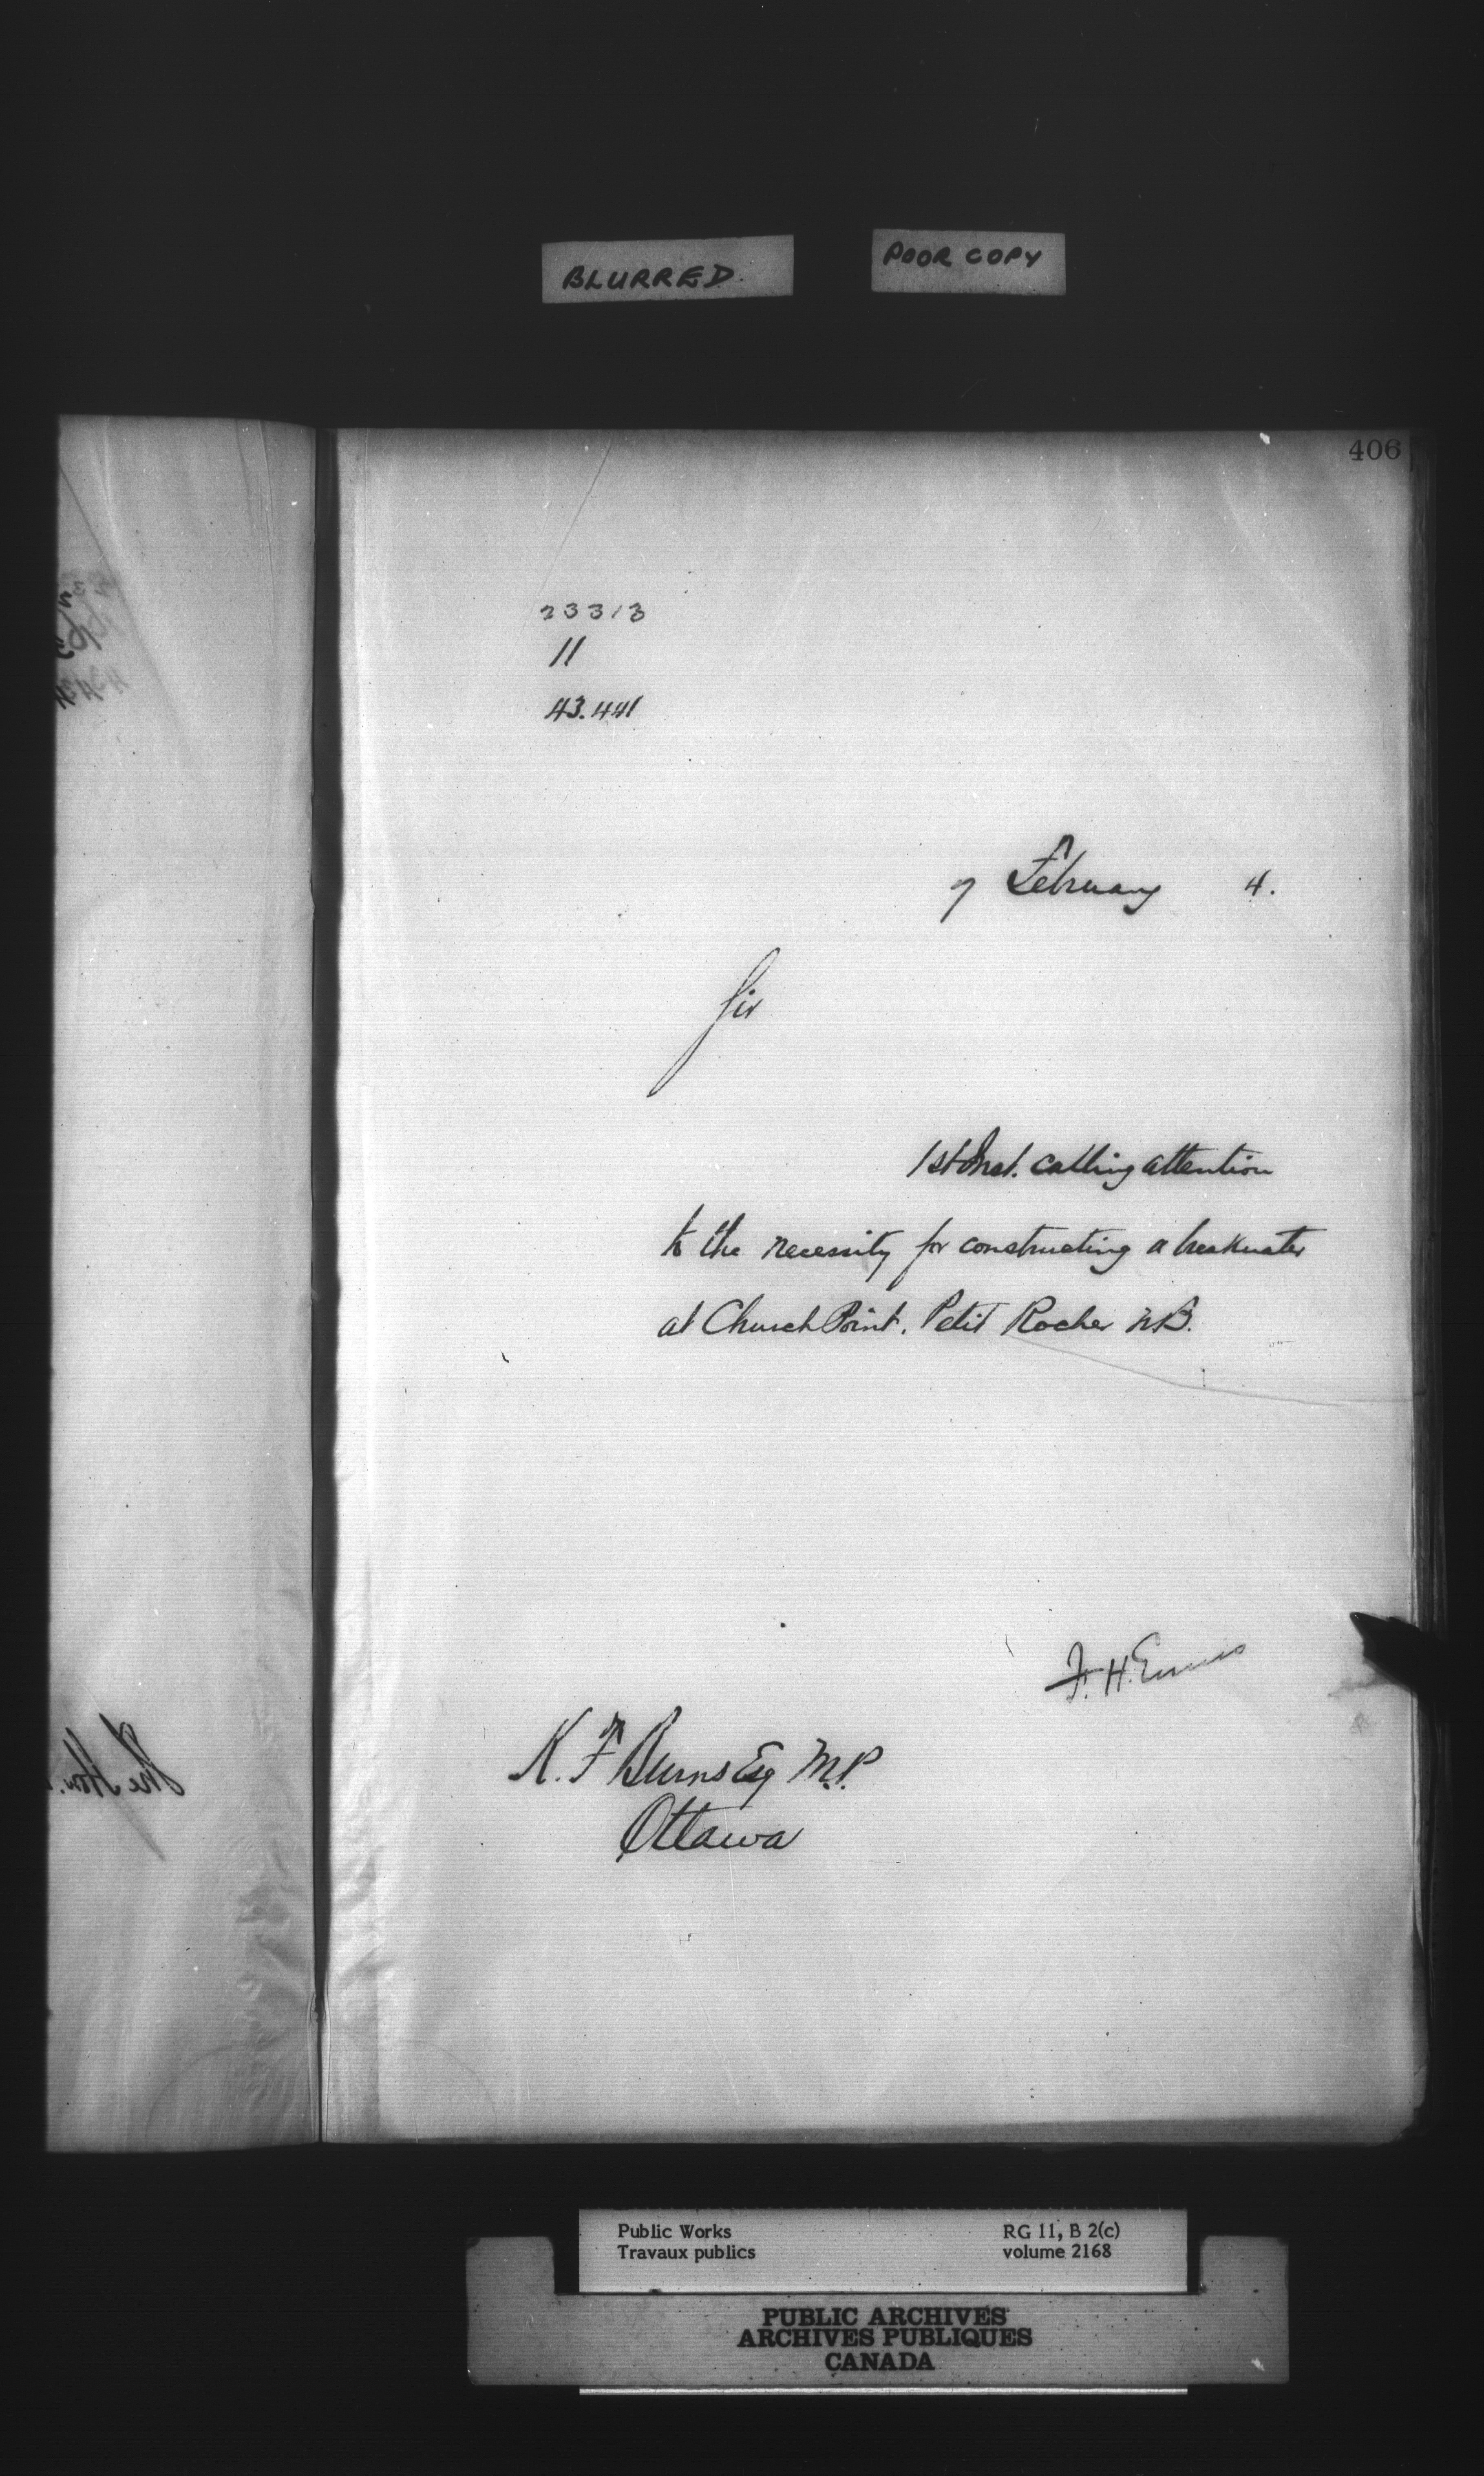 BLURRED.
POOR COPY
406
23313
11
43.441
7 February 4.
Sir
1st Inst. calling attention
to the necessity for constructing a breakwater
at Church Point. Petit Rocher N.B.
F. H. Ennis
K. F Burns Esq M.P.
Ottawa
The Hon.
Public Works
Travaux publics
RG 11, B 2(c)
volume 2168
PUBLIC ARCHIVES
ARCHIVES PUBLIQUES
CANADA